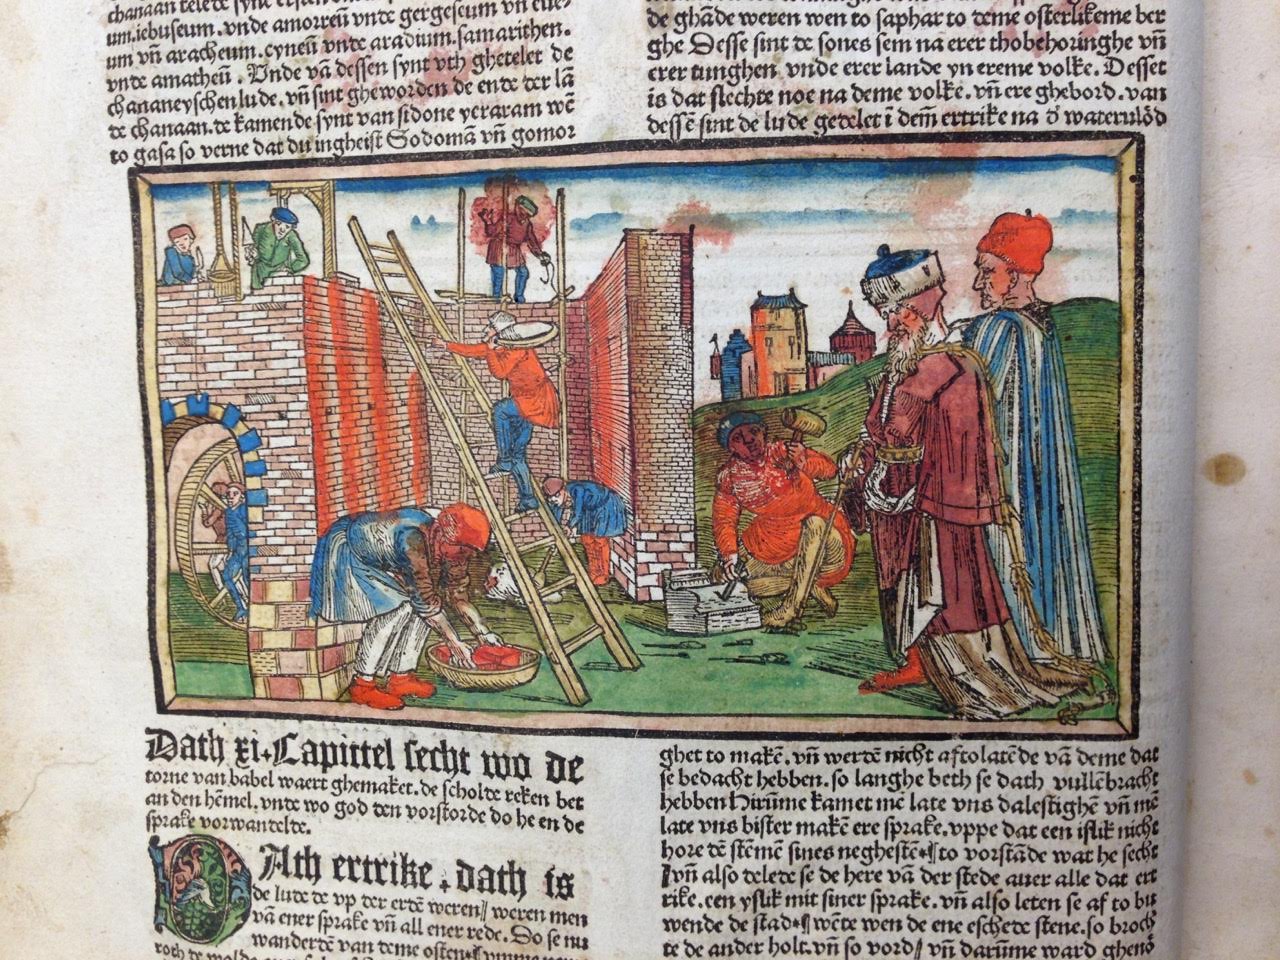 chanaan telede syne ersten
um. iebuseum. vnde amorreū vnde gergeseum vn̄ eue⸗
um vn̄ aracheum. cyneū vnde aradium. samarithen.
vnde amatheū. Vnde vā dessen synt vth ghetelet de
chananeyschen lude. vn̄ sint gheworden de ende der lā
de chanaan. de kamende synt van sidone geraram wē
to gasa so verne dat du ingheist Sodomā vn̄ gomor
de ghāde weren wen to saphar to deme osterlikeme ber
ghe Desse sint de sones sem nā erer thobehoringhe vn̄
erer tunghen vnde erer lande yn ereme volke. Desset
is dat slechte noe na deme volke. vn̄ ere ghebord. van
dessē sint de lude gedelet ī dem̄ ertrike na d' waterulod
Dath xi. Capittel secht wo de
torne van babel waert ghemaket. de scholde reken bet
an den hēmel. vnde wo god den vorstorde do he en de
sprake vorwandelde.
Dath ertrike. dath is
de lude de vp der erdē weren// weren men
vā ener sprake vn̄ all ener rede. Do se nu
wanderdē van deme ostē
ghet to makē. vn̄ werdē nicht aflolatēde vā deme dat
se bedacht hebben. so langhe beth se dath vullēbracht
hebben Hirūme kamet mē late vns dalestighē vn̄ mē
late vns bister makē ere sprake. vppe dat een islik nicht
hore dē stēmē sines neghestē to vorstāde wat he secht
Vn̄ also delede se de here vā der stede auer alle dat ert
rike. een yslik mit siner sprake. vn̄ also leten se af to bu
wende de stad wēte wen de ene eschede stene. so broch
te de ander holt. vn̄ so vord// vn̄ darūme ward ghenō